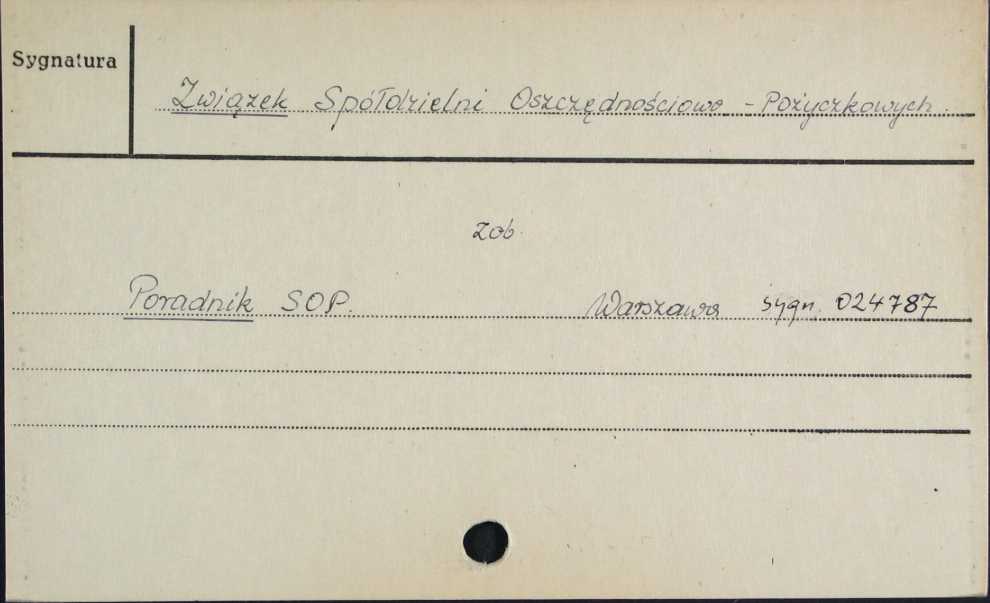 Sygnatura
Związek Spółdzielni Oszczędnościowo - Pożyczkowych.
zob.
Poradnik SOP. Warszawa sygn. 024787